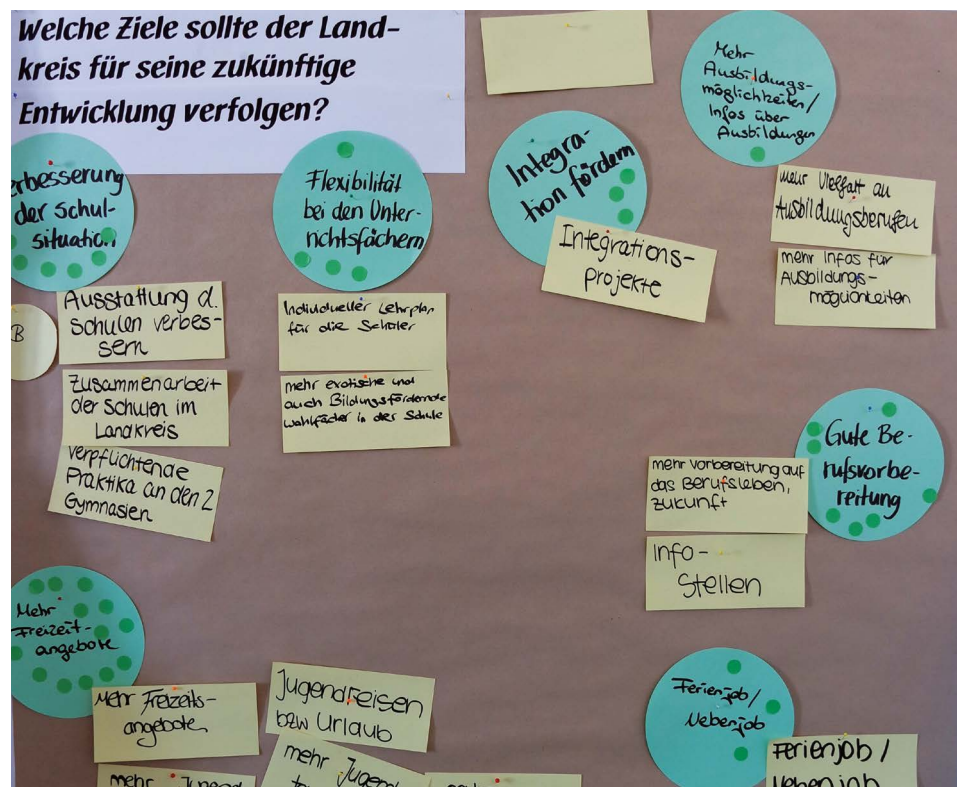 Welche Ziele sollte der Land-
kreis für seine zukünftige
Entwicklung verfolgen?
erbesserung
der Schul-
situation
B
Ausstattung d.
Schulen verbes-
sern
Zusammenarbeit
der Schulen im
Landkreis
verpflichtende
Praktika an den 2
Gymnasien
Flexibilität
bei den Unter-
richtsfächern
Individueller Lehrplan
für die Schüler
mehr exotische und
auch Bildungsfördernde
Wahlfächer in der Schule
Integra-
tion fördern
Integrations-
projekte
Mehr
Ausbildungs-
möglichkeiten/
Infos über
Ausbildungen
mehr Vielfalt an
Ausbildungsberufen
mehr Infos für
Ausbildungs-
möglichkeiten
Gute Be-
rufsvorbe-
reitung
mehr Vorbereitung auf
das Berufsleben,
Zukunft
Info-
Stellen
Mehr
Freizeit-
angebote
Mehr Freizeits-
angebote
mehr Jugend
Jugendreisen
bzw Urlaub
mehr Jugend
Ferienjob/
Nebenjob
Ferienjob /
Nebenjob